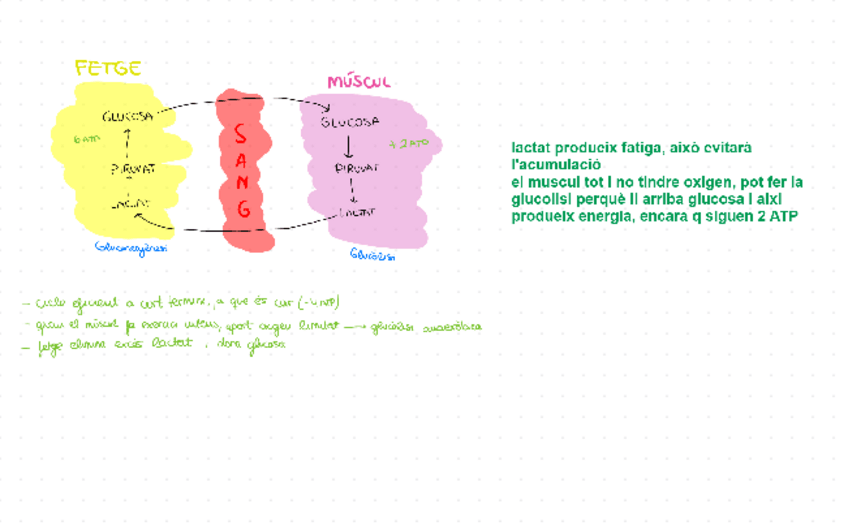 FETGE
MÚSCUL
GLUCOSA
6 ATP
PIRUVAT
LACTAT
Gluconeogènesi
SANG
GLUCOSA
+2 ATP
PIRUVAT
LACTAT
Glucòlisi
lactat produeix fatiga, això evitarà
l'acumulació
el muscul tot i no tindre oxigen, pot fer la
glucolisi perquè li arriba glucosa i aixi
produeix energia, encara q siguen 2 ATP
- cicle eficient a curt termini, a que és car (-4 ATP)
- quan el múscul fa exercici intens, aport oxigen limitat → glucòlisi anaeròbica
- fetge elimina excés lactat, dona glucosa